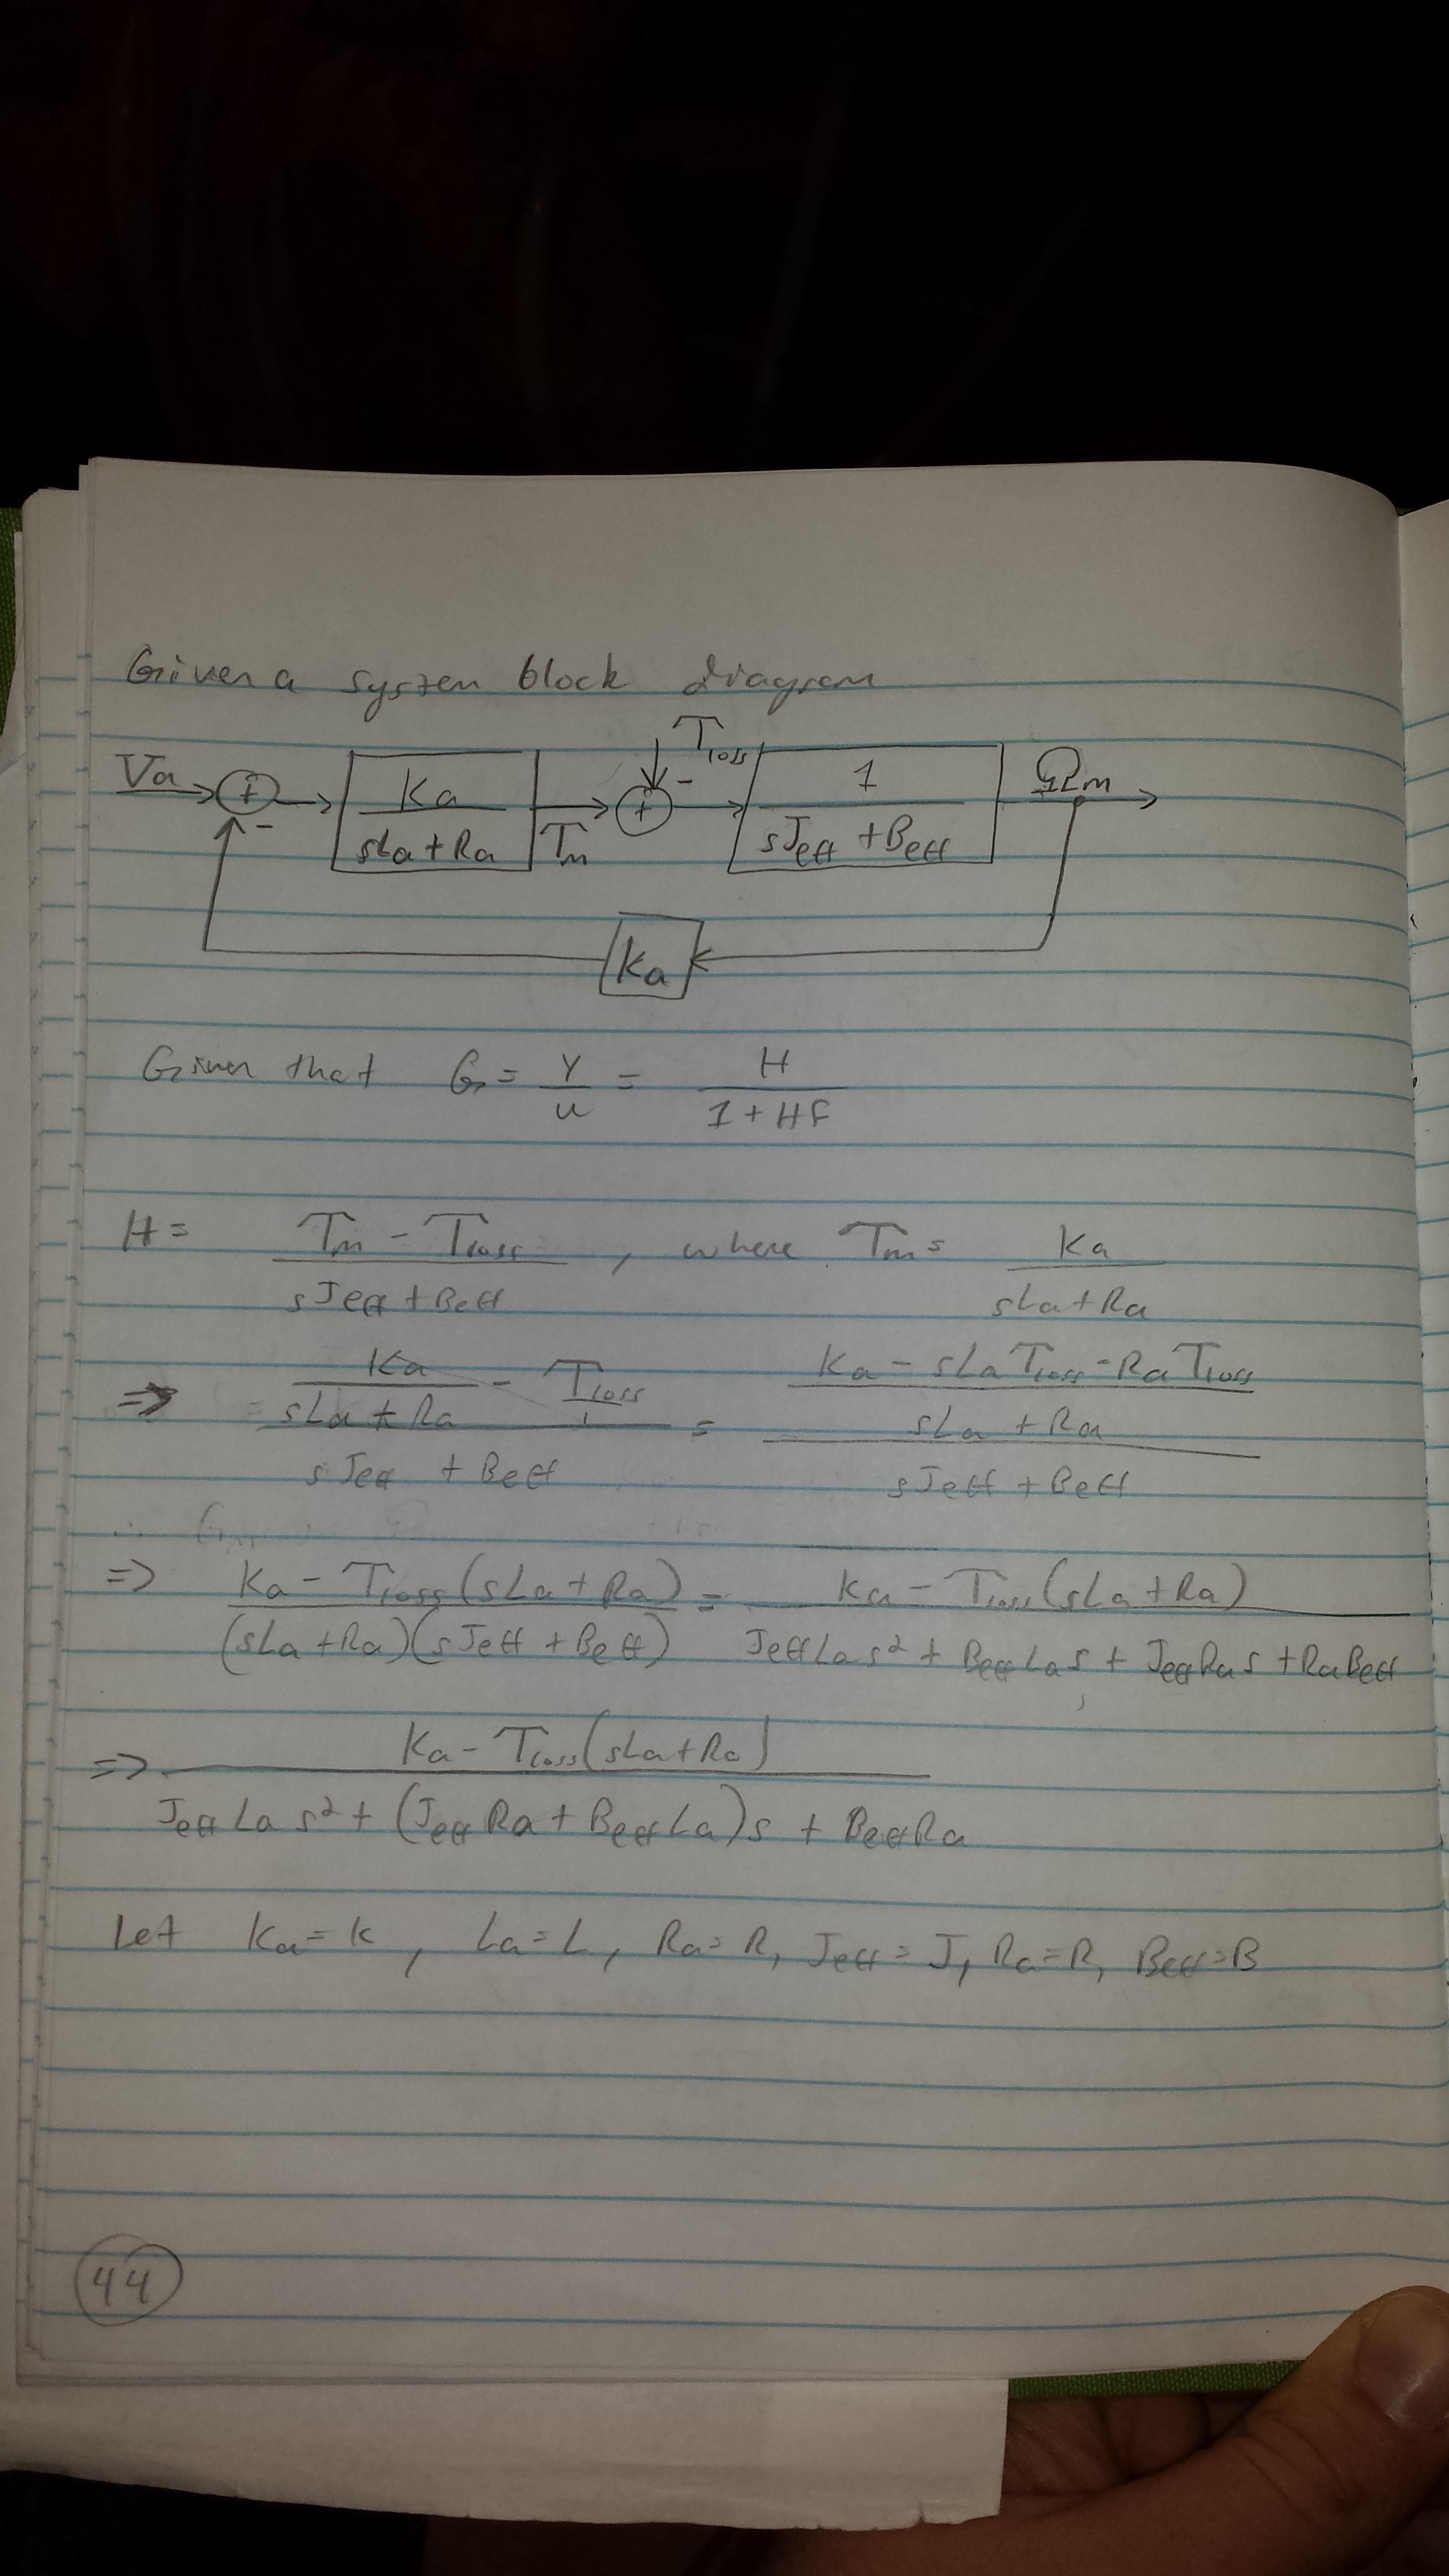 Given a system block diagram
Va + - Ka / (sLa + Ra) Tm + - Tloss 1 / (sJeff + Beff) Ωm
Ka
Given that G = Y/u = H / (1 + HF)
H = (Tm - Tloss) / (sJeff + Beff) , where Tm = Ka / (sLa + Ra)
=> = (Ka / (sLa + Ra) - Tloss / 1) / (sJeff + Beff) = ((Ka - sLa Tloss - Ra Tloss) / (sLa + Ra)) / (sJeff + Beff)
=> (Ka - Tloss(sLa + Ra)) / ((sLa + Ra)(sJeff + Beff)) = (Ka - Tloss(sLa + Ra)) / (JeffLas² + BeffLas + JeffRas + RaBeff)
=> (Ka - Tloss(sLa + Ra)) / (JeffLas² + (JeffRa + BeffLa)s + BeffRa)
Let Ka = K, La = L, Ra = R, Jeff = J, Ra = R, Beff = B
44